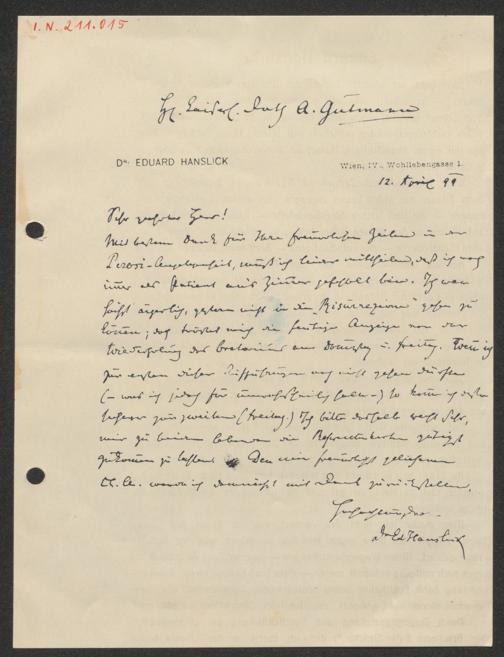 I. N. 211.015
H. Kaiserl. Rath A. Gutmann
DR. EDUARD HANSLICK
Wien, IV., Wohllebengasse 1.
12. April 99
Sehr geehrter Herr!
Mit bestem Dank für Ihre freundlichen Zeilen in der
Perosi-Angelegenheit, muß ich leider mittheilen, daß ich noch
immer als Patient an's Zimmer gefesselt bin. Ich war
höchst ärgerlich, gestern nicht in die „Risurrezione" gehen zu
können; doch tröstet mich die heutige Anzeige von der
Wiederholung des Oratoriums am Donnstag u. Freitag. Wenn ich
zur ersten dieser Aufführungen noch nicht gehen dürfte
(– was ich jedoch für unwahrscheinlich halte –) so kann ich desto
sicherer zur zweiten (Freitag.) Ich bitte deßhalb recht sehr,
mir zu beiden die gütigst
zukommen zu lassen. Den mir freundlichst geliehenen
werde ich demnächst mit Dank zurückstellen.
Hochachtungsvoll
Dr Ed Hanslick